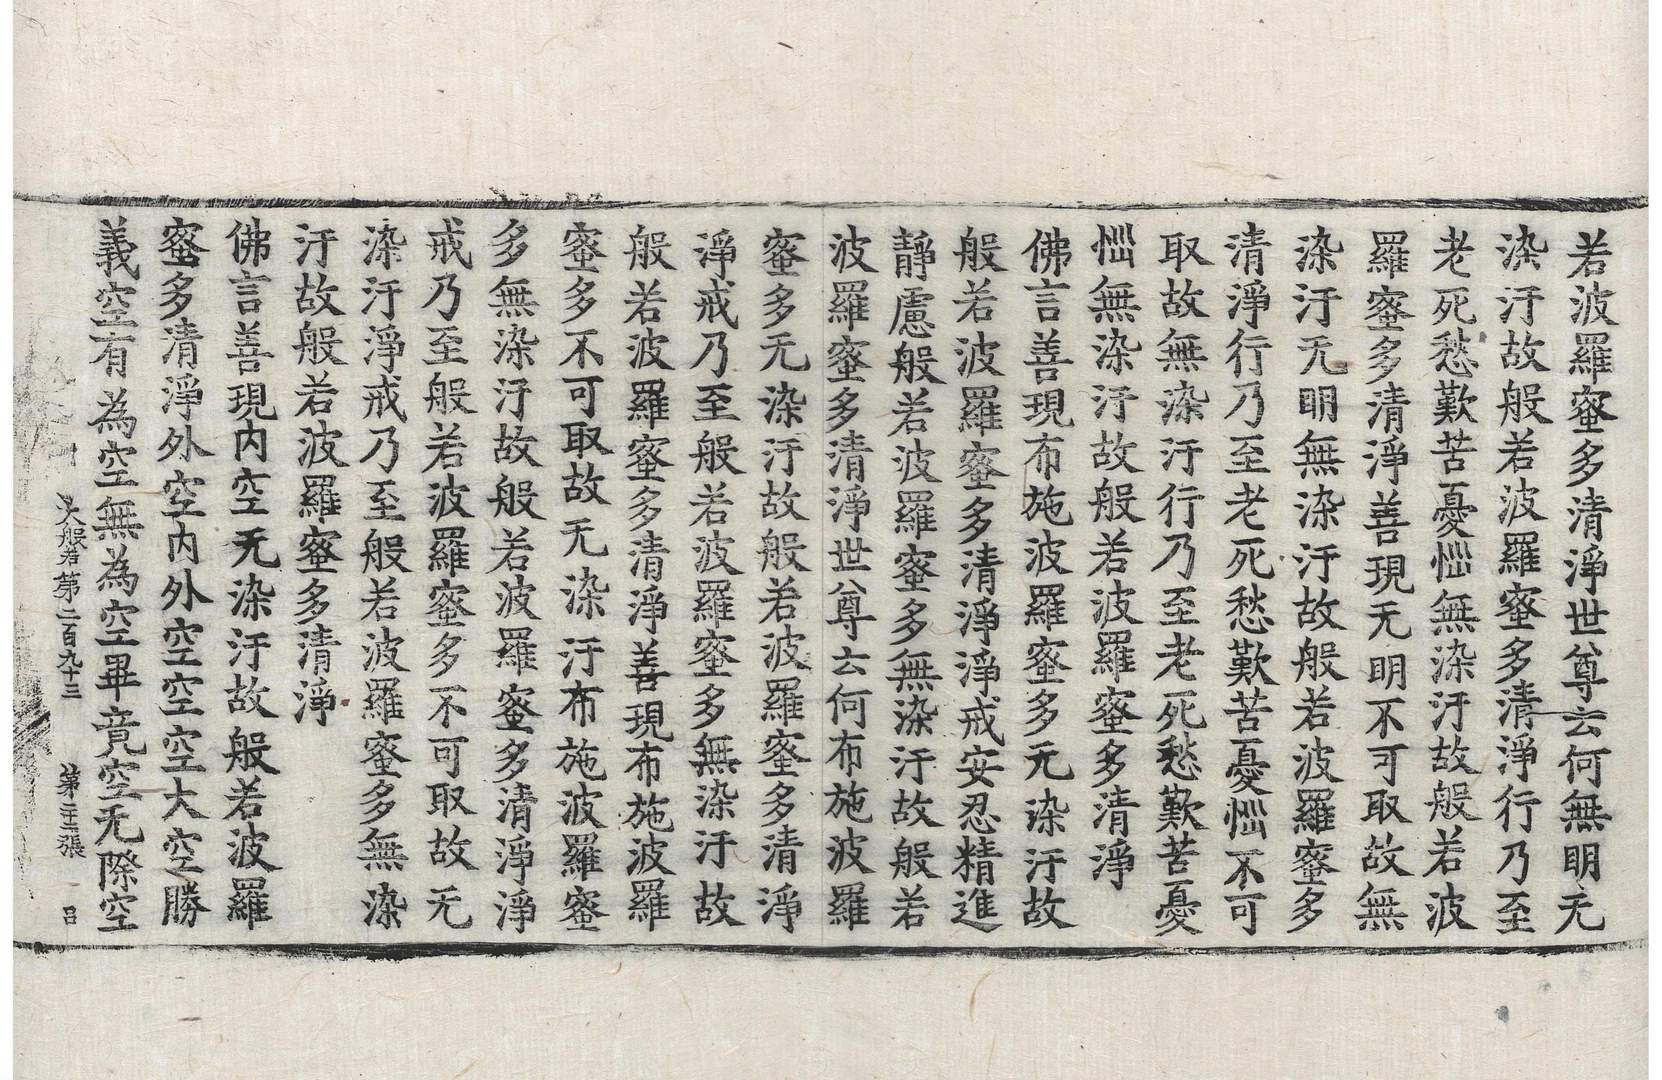 若波羅蜜多清淨世尊云何無明无
染汙故般若波羅蜜多清淨行乃至
老死愁歎苦憂惱無染汙故般若波
羅蜜多清淨善現无明不可取故無
染汙无明無染汙故般若波羅蜜多
清淨行乃至老死愁歎苦憂惱不可
取故無染汙行乃至老死愁歎苦憂
惱無染汙故般若波羅蜜多清淨
佛言善現布施波羅蜜多无染汙故
般若波羅蜜多清淨淨戒安忍精進
靜慮般若波羅蜜多無染汙故般若
波羅蜜多清淨世尊云何布施波羅
蜜多无染汙故般若波羅蜜多清淨
淨戒乃至般若波羅蜜多無染汙故
般若波羅蜜多清淨善現布施波羅
蜜多不可取故无染汙布施波羅蜜
多無染汙故般若波羅蜜多清淨淨
戒乃至般若波羅蜜多不可取故无
染汙淨戒乃至般若波羅蜜多無染
汙故般若波羅蜜多清淨
佛言善現内空无染汙故般若波羅
蜜多清淨外空内外空空空大空勝
義空有為空無為空畢竟空无際空
大般若第二百九十三 第 張 呂